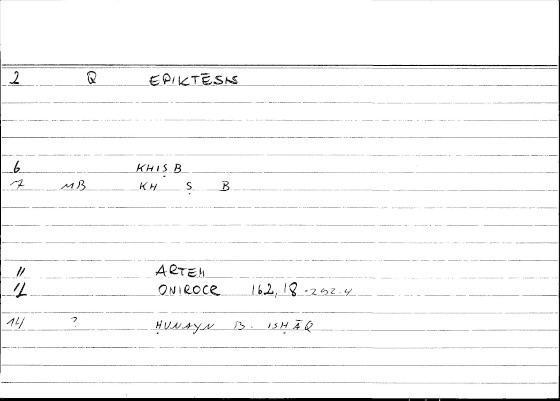 2 Q EPIKTĒSIS
6 KHIṢB
7 MB KH Ṣ B
11 ARTEM
12 ONIROCR 162,18-292.4
14 ? ḤUNAYN B. ISḤĀQ